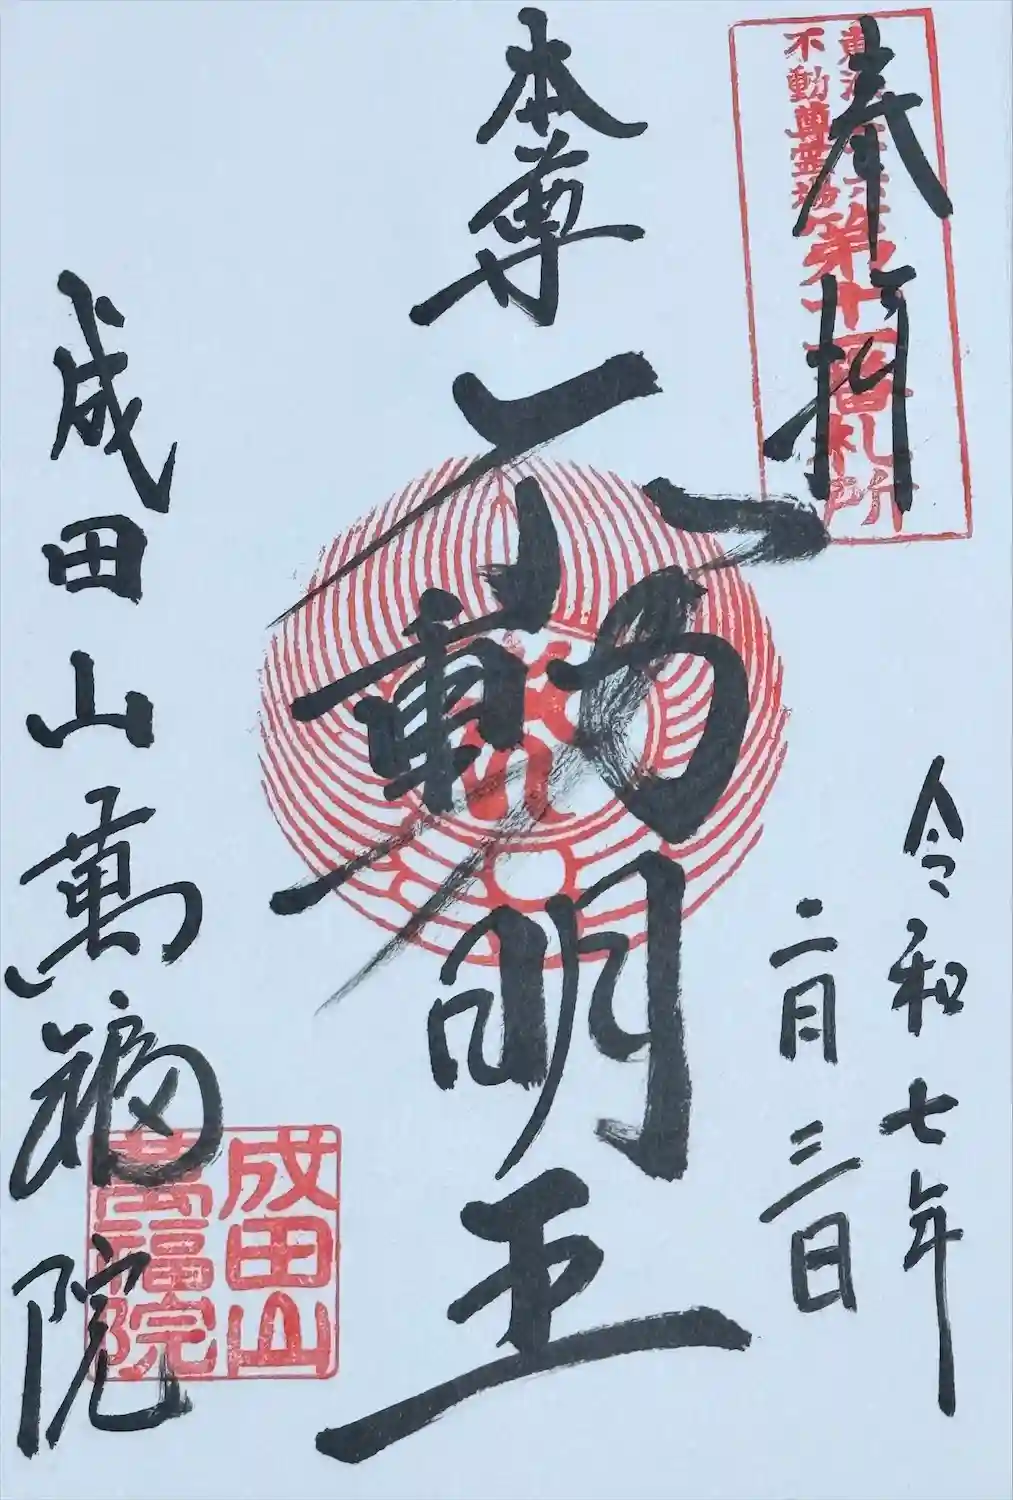 奉拝
東海三十六
不動尊霊場
第十一番札所
令和七年
二月三日
本尊
不動明王
成田山萬福院
成田山
萬福院